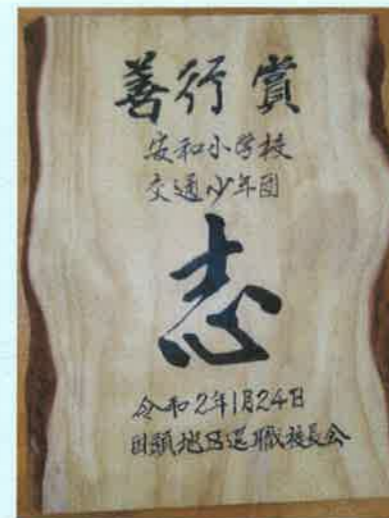 善行賞
安和小学校
交通少年団
志
令和2年1月24日
国頭地区退職校長会